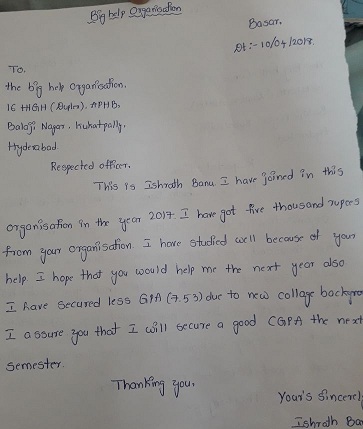 Big help Organisation
Basar,
Dt:-10/04/2018.
To,
the big help organisation,
16 HIGH (Duplex), APHB,
Balaji Nagar, Kukatpally,
Hyderabad.
Respected officer,
This is Ishrath Banu I have joined in this
organisation in the year 2017. I have got five thousand rupees
from your organisation. I have studied well because of your
help I hope that you would help me the next year also
I have secured less GPA (7.53) due to new collage
I assure you that I will secure a good CGPA the next
semester.
Thanking you,
Your's Sincerel
Ishrath Ba